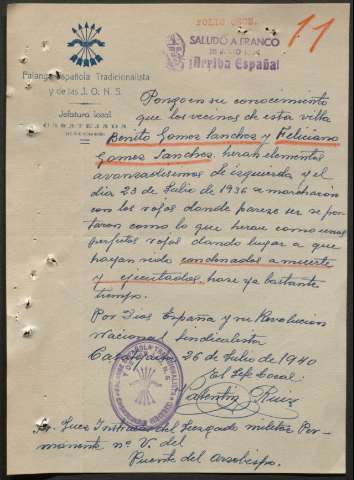 FOLIO ONCE.
11
SALUDO A FRANCO
¡Arriba España!
Falange Española Tradicionalista
y de las J. O. N. S.
Jefatura Local
CASATEJADA
Pongo en su conocimiento
que los vecinos de esta villa
Benito Gomez Sanchez y Feliciano
Gomez Sanchez, heran elementos
avanzadisimos de izquierda y el
dia 23 de Julio de 1936 se marcharon
con los rojos donde parese ser se por-
taron como lo que heran como unos
perfetos rojos dando lugar a que
hayan sido condenados a muerte
y ejecutados, hase ya bastante
tiempo.
Por Dios España y su Revolucion
Nacional Sindicalista
Casatejada 26 de Julio de 1940
El Jefe Local.
Valentin Ruiz
Sr. Juez Instructor del Juzgado militar Per-
manente nº V. del
Puente del Arsobispo.